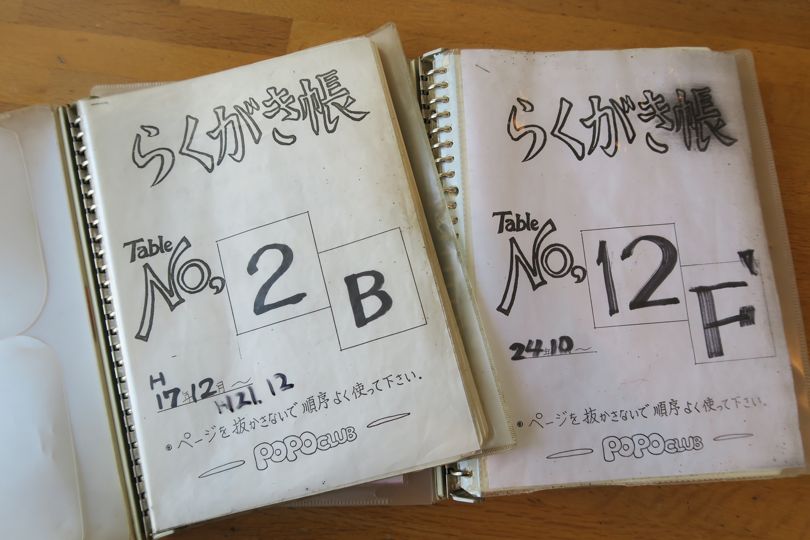 らくがき帳
Table
No, 2 B
H
17年12月〜
H21.12
ページを抜かさないで順序よく使って下さい。
POPO CLUB
らくがき帳
Table
No, 12 F
24.10 〜
ページを抜かさないで順序よく使って下さい。
POPO CLUB